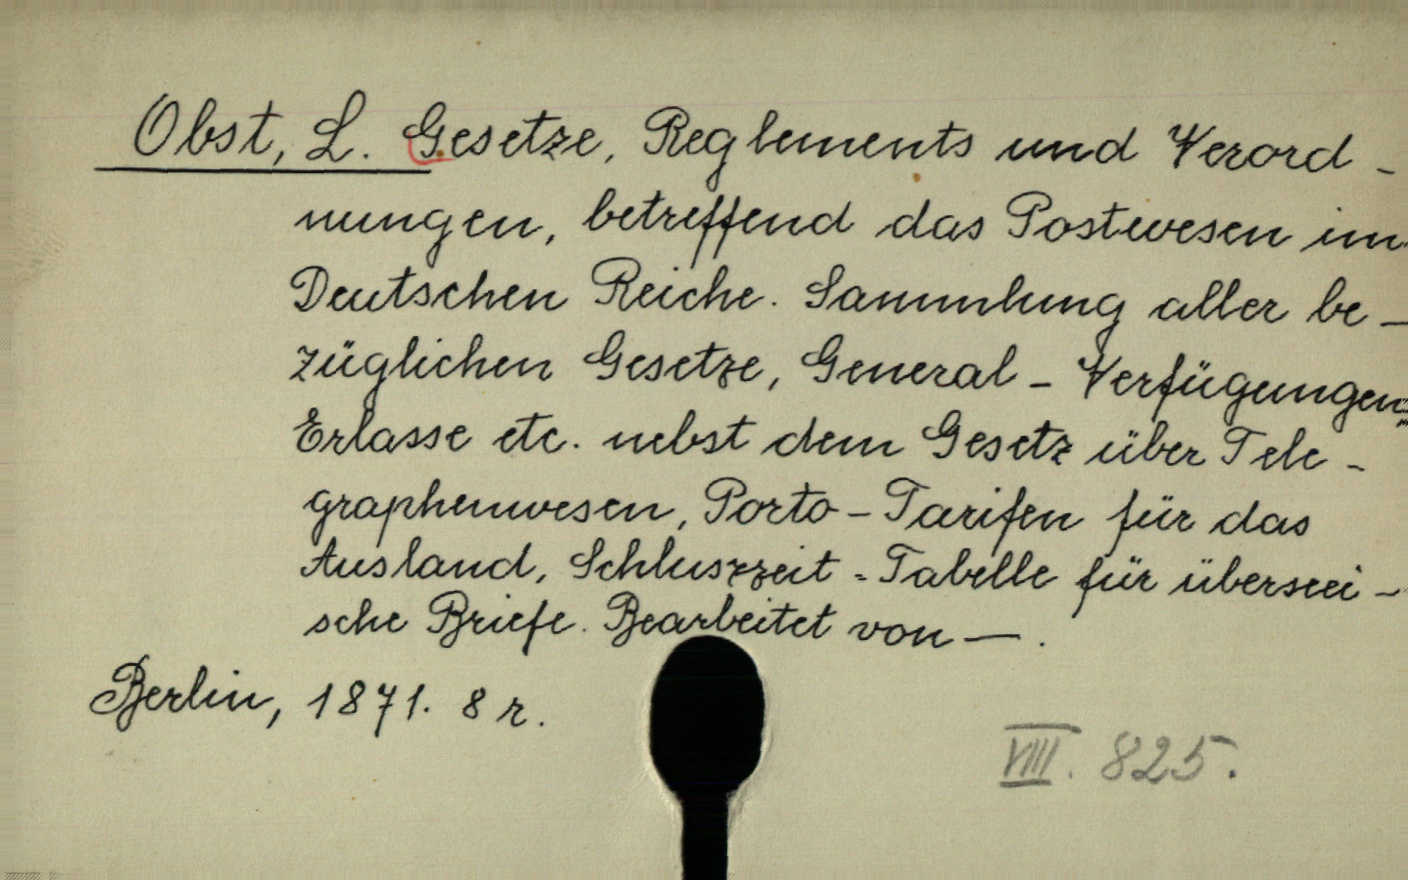 Obst, L. Gesetze, Reglements und Verord-
nungen, betreffend das Postwesen im
Deutschen Reiche. Sammlung aller be-
züglichen Gesetze, General-Verfügungen,
Erlasse etc. nebst dem Gesetz über Tele-
graphenwesen, Porto-Tarifen für das
Ausland, Schluszzeit-Tabelle für überseei-
sche Briefe. Bearbeitet von —.
Berlin, 1871. 8 r.
VIII. 825.